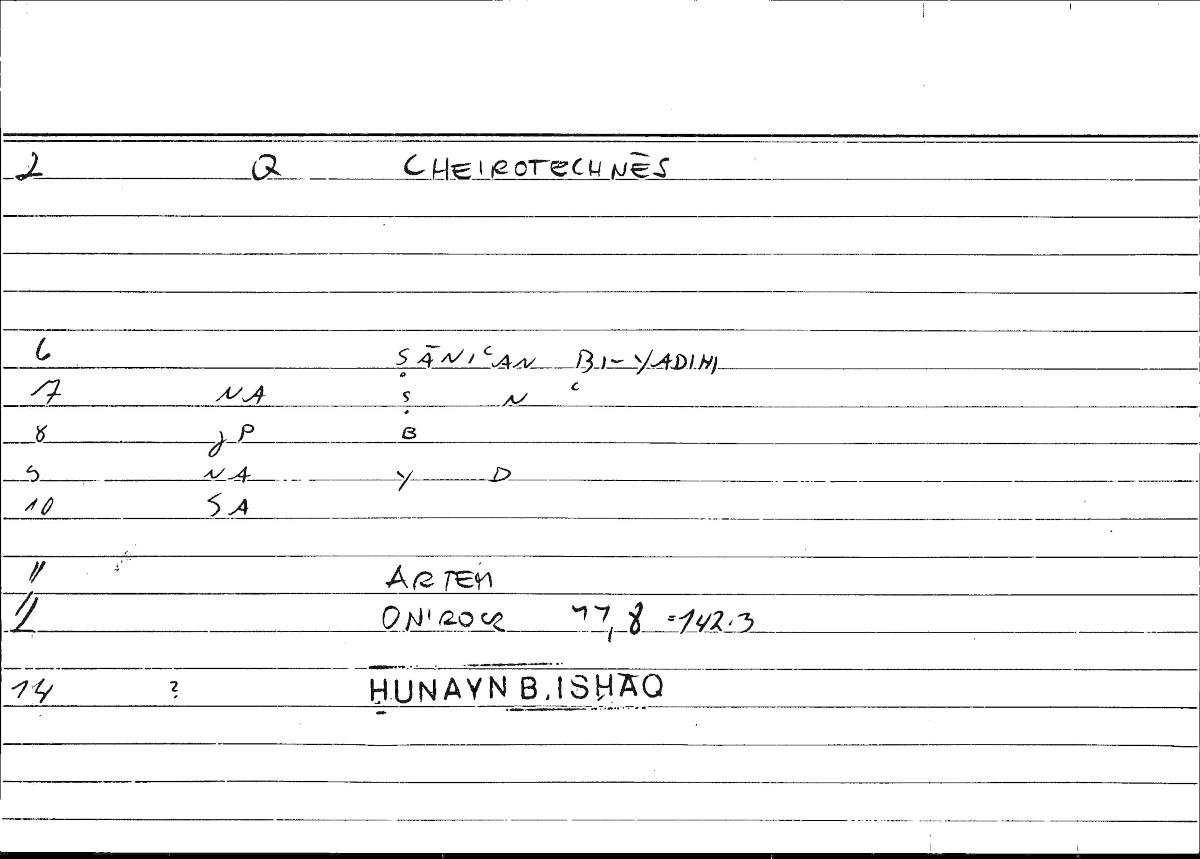 2 Q CHEIROTECHNĒS
6 ṢĀNIᶜAN BI-YADIHI
7 NA Ṣ N ᶜ
8 jP B
9 NA Y D
10 SA
11 ARTEM
12 ONIROCR 77,8 =142.3
14 ? ḤUNAYN B. ISḤĀQ